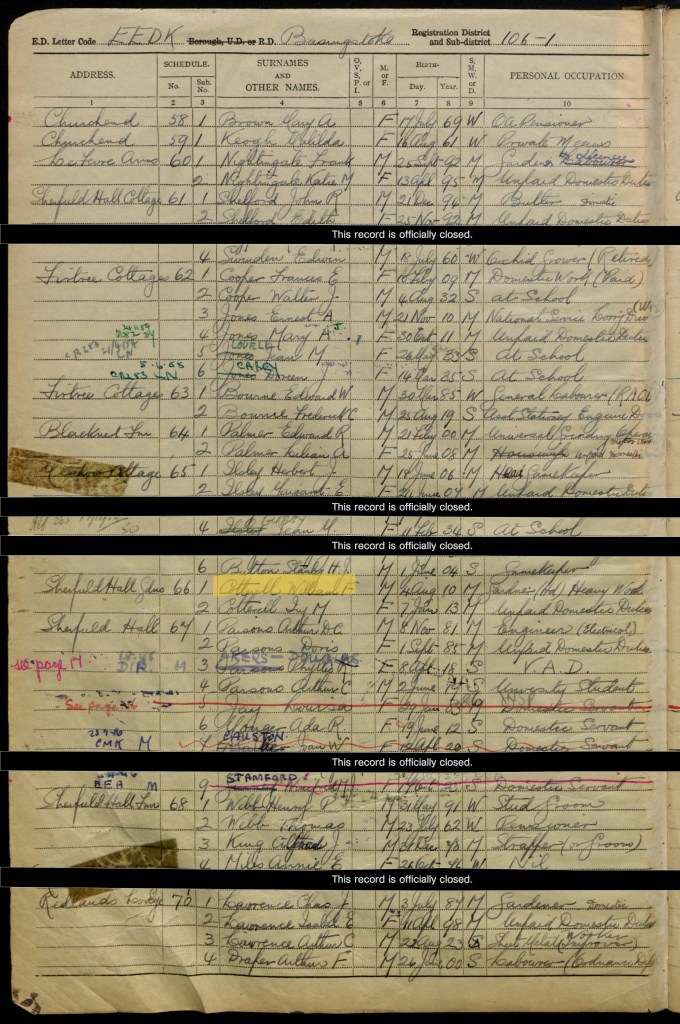 E.D. Letter Code EEDK Borough, U.D. or R.D. Basingstoke Registration District and Sub-district 106-1
ADDRESS. SCHEDULE. No. Sub. No. SURNAMES AND OTHER NAMES. O, V, S, P. or I. M. or F. BIRTH— Day. Year. S, M, W. or D. PERSONAL OCCUPATION.
1 2 3 4 5 6 7 8 9 10
Churchend 58 1 Brown Mary A. F 17 July 69 W OA Pensioner
Churchend 59 1 Keogh F 16 Aug 61 W Private Means
Arms 60 1 Nightingale Frank M 25 Sept 92 M
2 Nightingale Katie M F 13 Apl 95 M Unpaid Domestic Duties
Sherfield Hall Cottage 61 1 Shelford John R M 21 Dec 94 M Butler Domestic
2 Shelford Edith F 25 Nov 92 M Unpaid Domestic Duties
This record is officially closed.
4 Swinden Edwin M 18 July 60 W Orchid Grower (Retired)
Firtree Cottages 62 1 Cooper Frances E F 10 July 09 M Domestic Work (Paid)
2 Cooper Walter J M 4 Aug 32 S at School
3 Jones Ernest A M 21 Nov 10 M National Service Lorry
4 Jones Mary A F 30 Oct 11 M Unpaid Domestic Duties
LOVELL
5 Jones Jean M F 33 S At School
5.4.55 CAREY
CR283 LN 6 Jones Doreen J F 14 Mar 35 S At School
Firtree Cottage 63 1 Bourne Edward W. M 30 Mar 85 W General Labourer
2 Bourne Frederick C M 25 Aug 19 S Asst Stationary Engine
Blacknest Fm 64 1 Palmer Edward R M 21 July 00 M Universal Grinding
2 Palmer Lilian A F 25 June 08 M Housewife Unpaid Domestic
Cottage 65 1 Ilsley Herbert J M 18 June 06 M Head GameKeeper
2 Ilsley Margaret E. F 21 June 07 M Unpaid Domestic Duties
This record is officially closed.
4 Ilsley Jean F 11 Feb 34 S At School
This record is officially closed.
6 Britton Stanley H J M 1 June 04 S GameKeeper
Sherfield Hall Gdns 66 1 Cotterell William F M 4 Aug 10 M Gardner (Vd) Heavy Work
2 Cotterell Ivy M F 7 Jan 13 M Unpaid Domestic Duties
Sherfield Hall 67 1 Parsons Arthur D.C. M 8 Nov 81 M Engineer (Electrical)
2 Parsons Doris F 1 Sept 85 M Unpaid Domestic Duties
AKERS-DOUGLAS
see page 17 DIR M 3 Parsons Phyllis R F 8 Apl 18 S V.A.D.
4 Parsons Arthur C M 2 June 19 S University Student
See page 5 Jay Louisa F 29 Jun S Domestic Servant
6 Ada R. F 19 June 12 S Domestic Servant
23.9.40 CAUSTON
CMK M Joan W F 12 Apl 20 S Domestic Servant
This record is officially closed.
BEA M STAMFORD
9 Winifred M F S Domestic Servant
Sherfield Hall Fm 68 1 Webb Henry P M 31 May 91 W Stud Groom
2 Webb Thomas M 23 July 62 W Pensioner
3 King Alfred J M 21 Dec 93 M Strapper (or Groom)
4 Miles Annie E F 26 Oct 76 W Nil
This record is officially closed.
Redlands Lodge 70 1 Lawrence Chas. J M 3 July 84 M Gardener Domestic
2 Lawrence Isabel E F 11 Apl 98 M Unpaid Domestic Duties
3 Lawrence Arthur C M 22 Aug 23 S Sheet Metal (Improver)
4 Draper Arthur F M 26 00 S Labourer (Ordnance